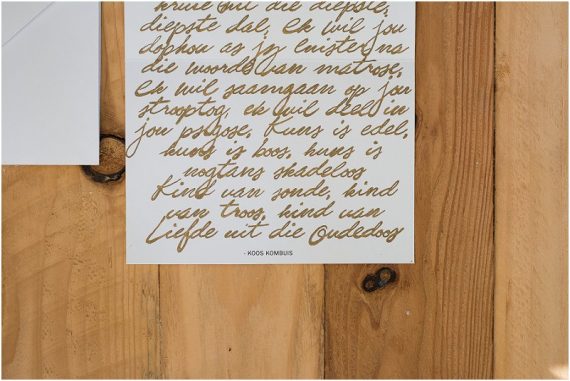 kruie uit die diepste,
diepste dal, Ek wil jou
dophou as jy luister na
die woorde van matrose,
Ek wil saamgaan op jou
strooptog, ek wil deel in
jou psigose, Kuns is edel,
kuns is boos, kuns is
nogtans skadeloos
Kind van sonde, kind
van troos, kind van
Liefde uit die Oudedoos
- KOOS KOMBUIS